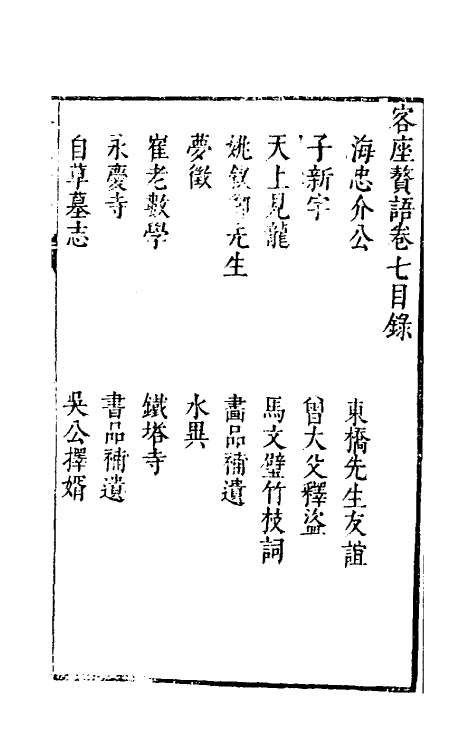 客座贅語卷七目錄
海忠介公　東橋先生友誼
子新字　曾大父釋盜
天上見龍　馬文璧竹枝詞
姚敘卿先生　畵品補遺
夢徵　水異
崔老數學　鐵塔寺
永慶寺　書品補遺
自草墓志　吳公擇婿